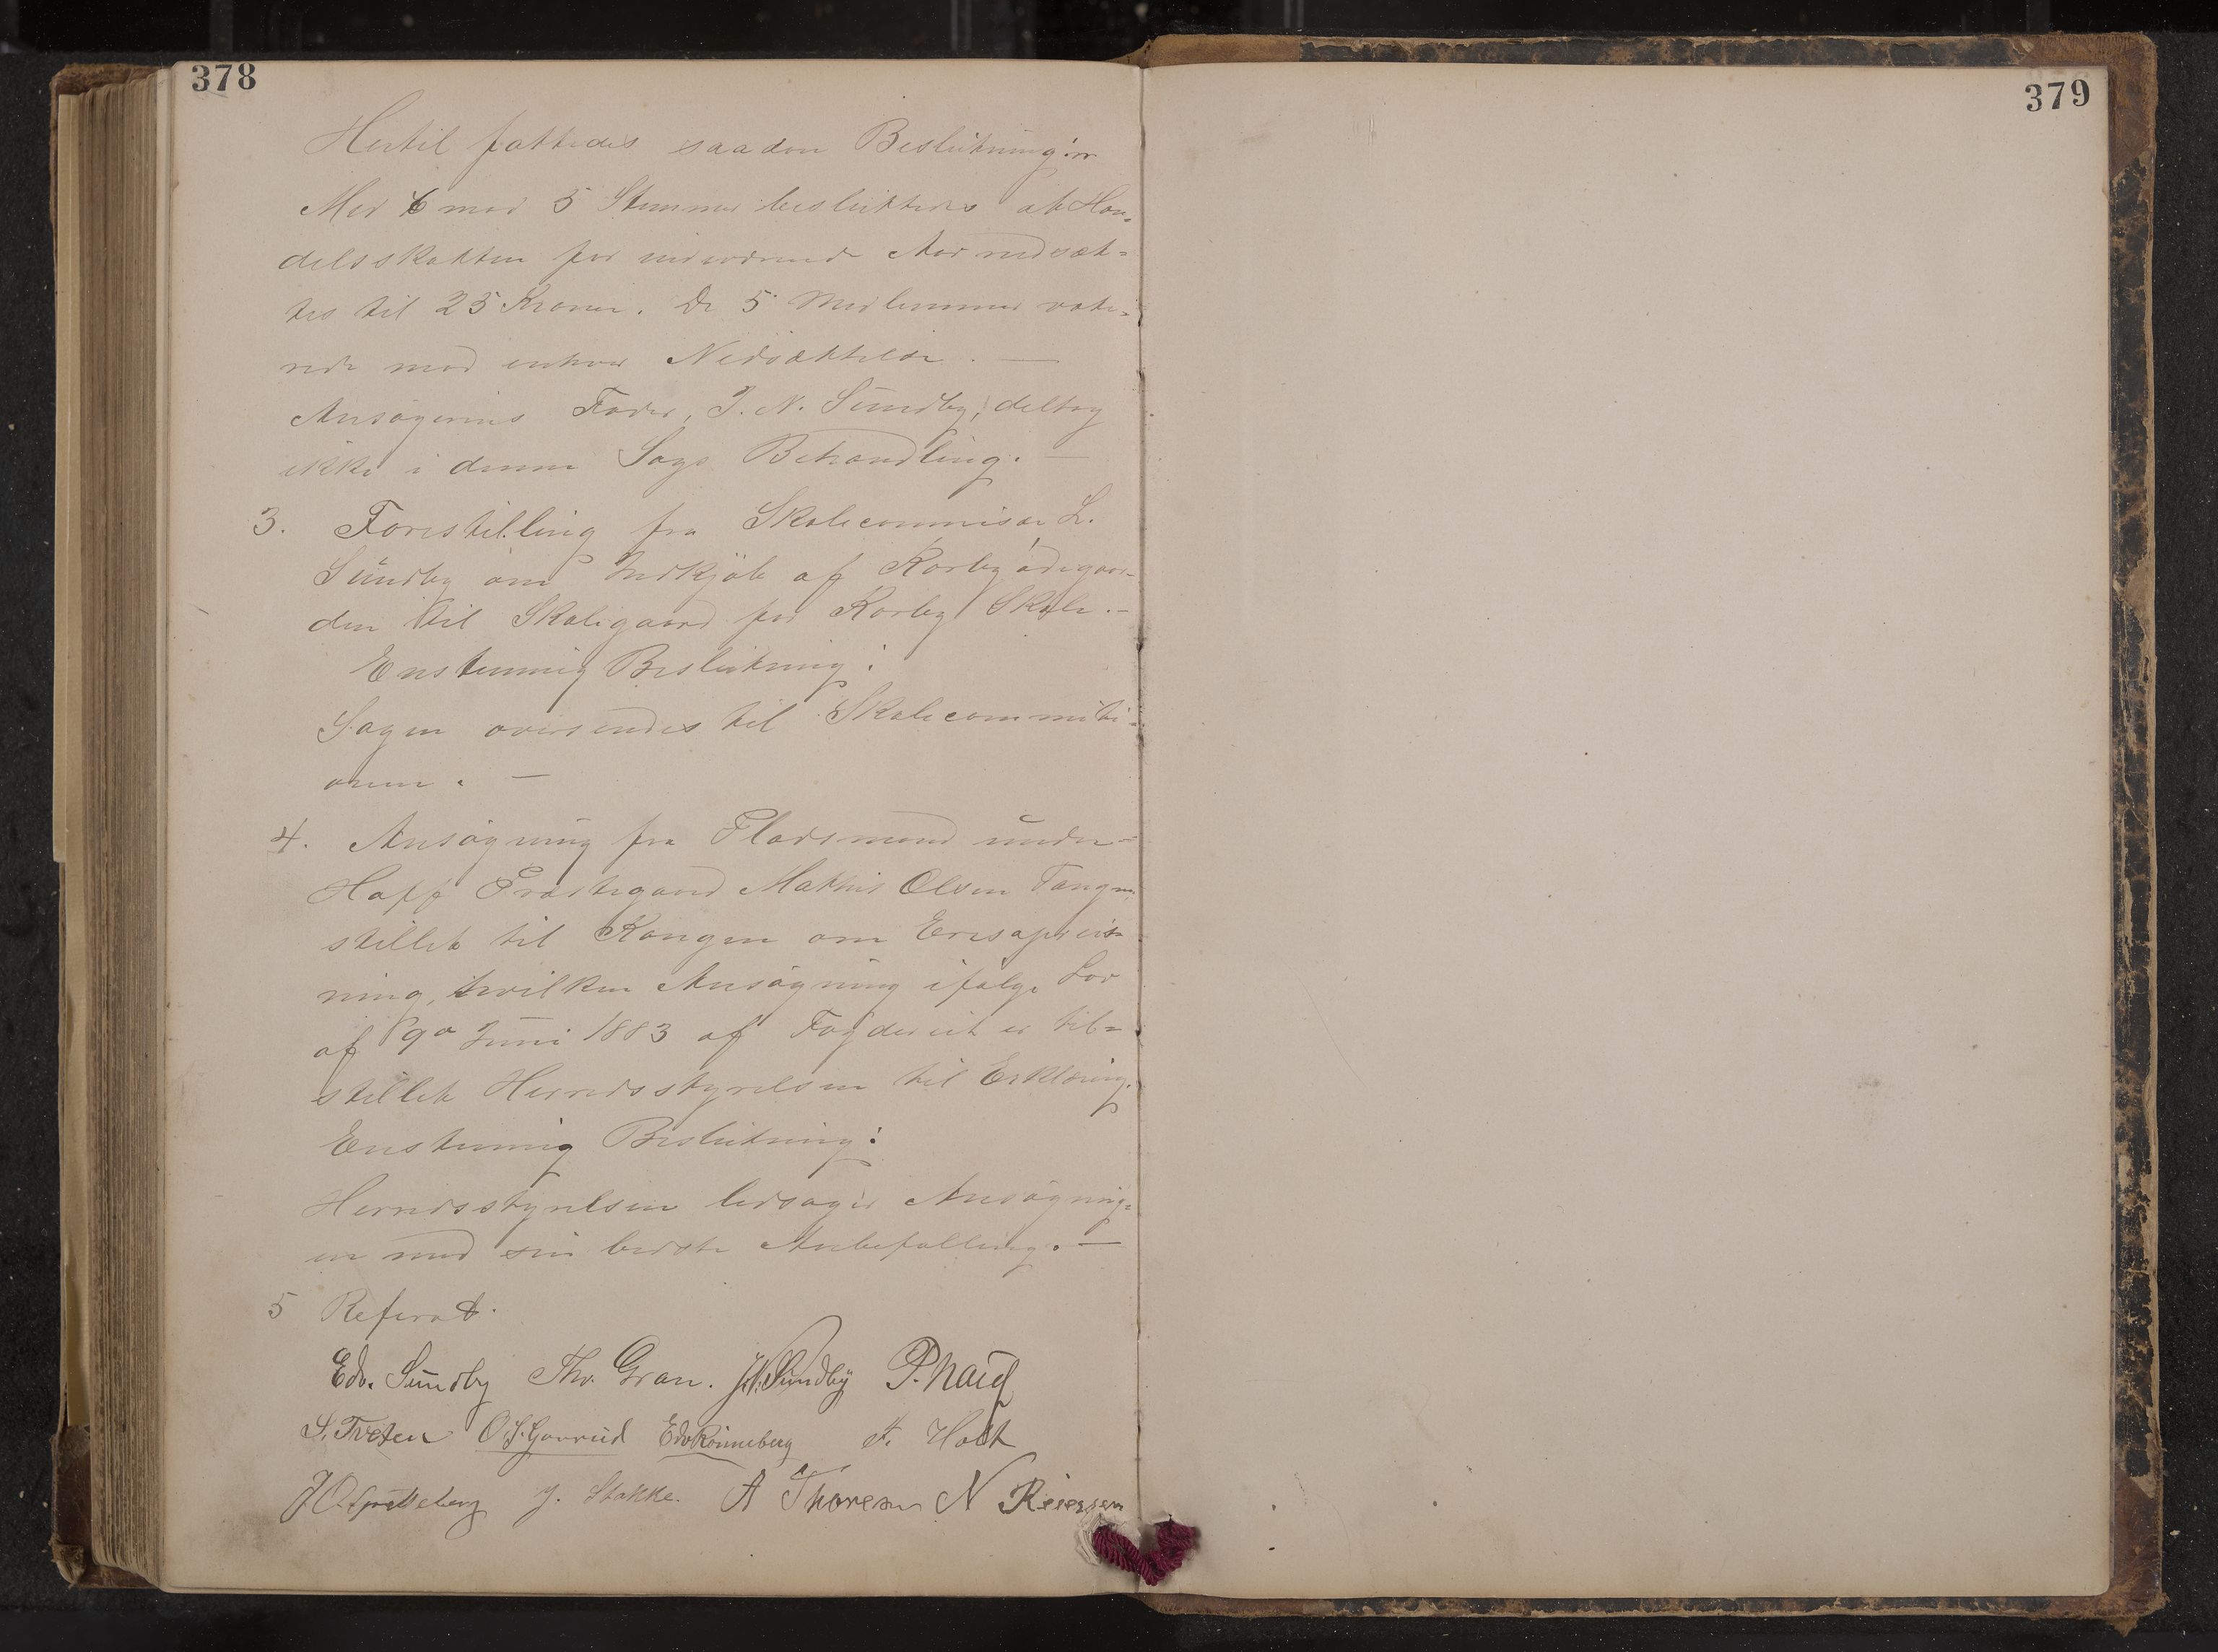 378
Hertil fattedes saadan Beslutning:
Med 6 mod 5 Stemmer besluttedes at Han-
delsskatten for indeværende Aar nedsæt-
tes til 25 Kroner. De 5 Medlemmer vote-
rede mod enhver Nedsættelse. —
Ansøgerens Fader, J. N. Sundby, deltog
ikke i denne Sags Behandling. —
3. Forestilling fra Skolecommisær L.
Sundby om Indkjøb af Korbyødegaar-
den til Skolegaard for Korby Skole. —
Enstemmig Beslutning:
Sagen oversendes til Skolecommisi-
onen. —
4. Ansøgning fra Pladsmand under
Hoff Præstegaard Mathis Olsen Tangen
stillet til Kongen om Æresopreis-
ning, hvilken Ansøgning ifølge Lov
af 9de Juni 1883 af Fogderiet er til-
stillet Herredsstyrelsen til Erklæring.
Enstemmig Beslutning:
Herredsstyrelsen ledsager Ansøgning-
en med sin bedste Anbefalling. —
5 Referat.
Edv. Sundby Th. Gran. J.N. Sundby P. Haug
S. Tveten O.S. Gaarud Edv Rønneberg F. Holt
J. Stokke. A Thoresen N Reiersen
379